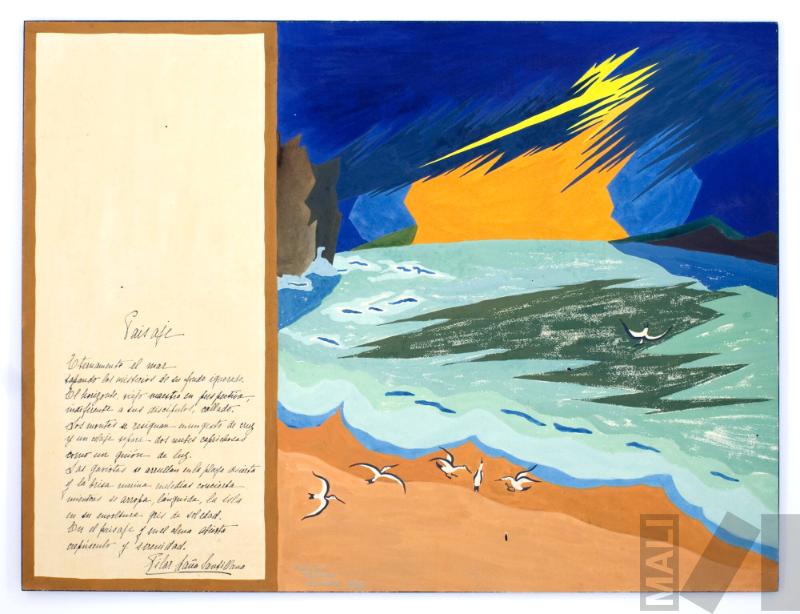 Paisaje
Eternamente el mar
tapando los misterios de su fondo ignorado.
El horizonte viejo maestro en perspectiva
indiferente a sus discípulos, collado.
Los montes se resignan en un gesto de cruz
y un celaje separa dos nubes caprichosas
como un guión de luz.
Las gaviotas se arrullan en la playa desierta
y la brisa marina melodías concierta
mientras se arropa, lánguida, la isla
en su envoltura gris de soledad.
En el paisaje y en el alma abierta
crepúsculo y serenidad.
Pilar Laña Santillana
MALI